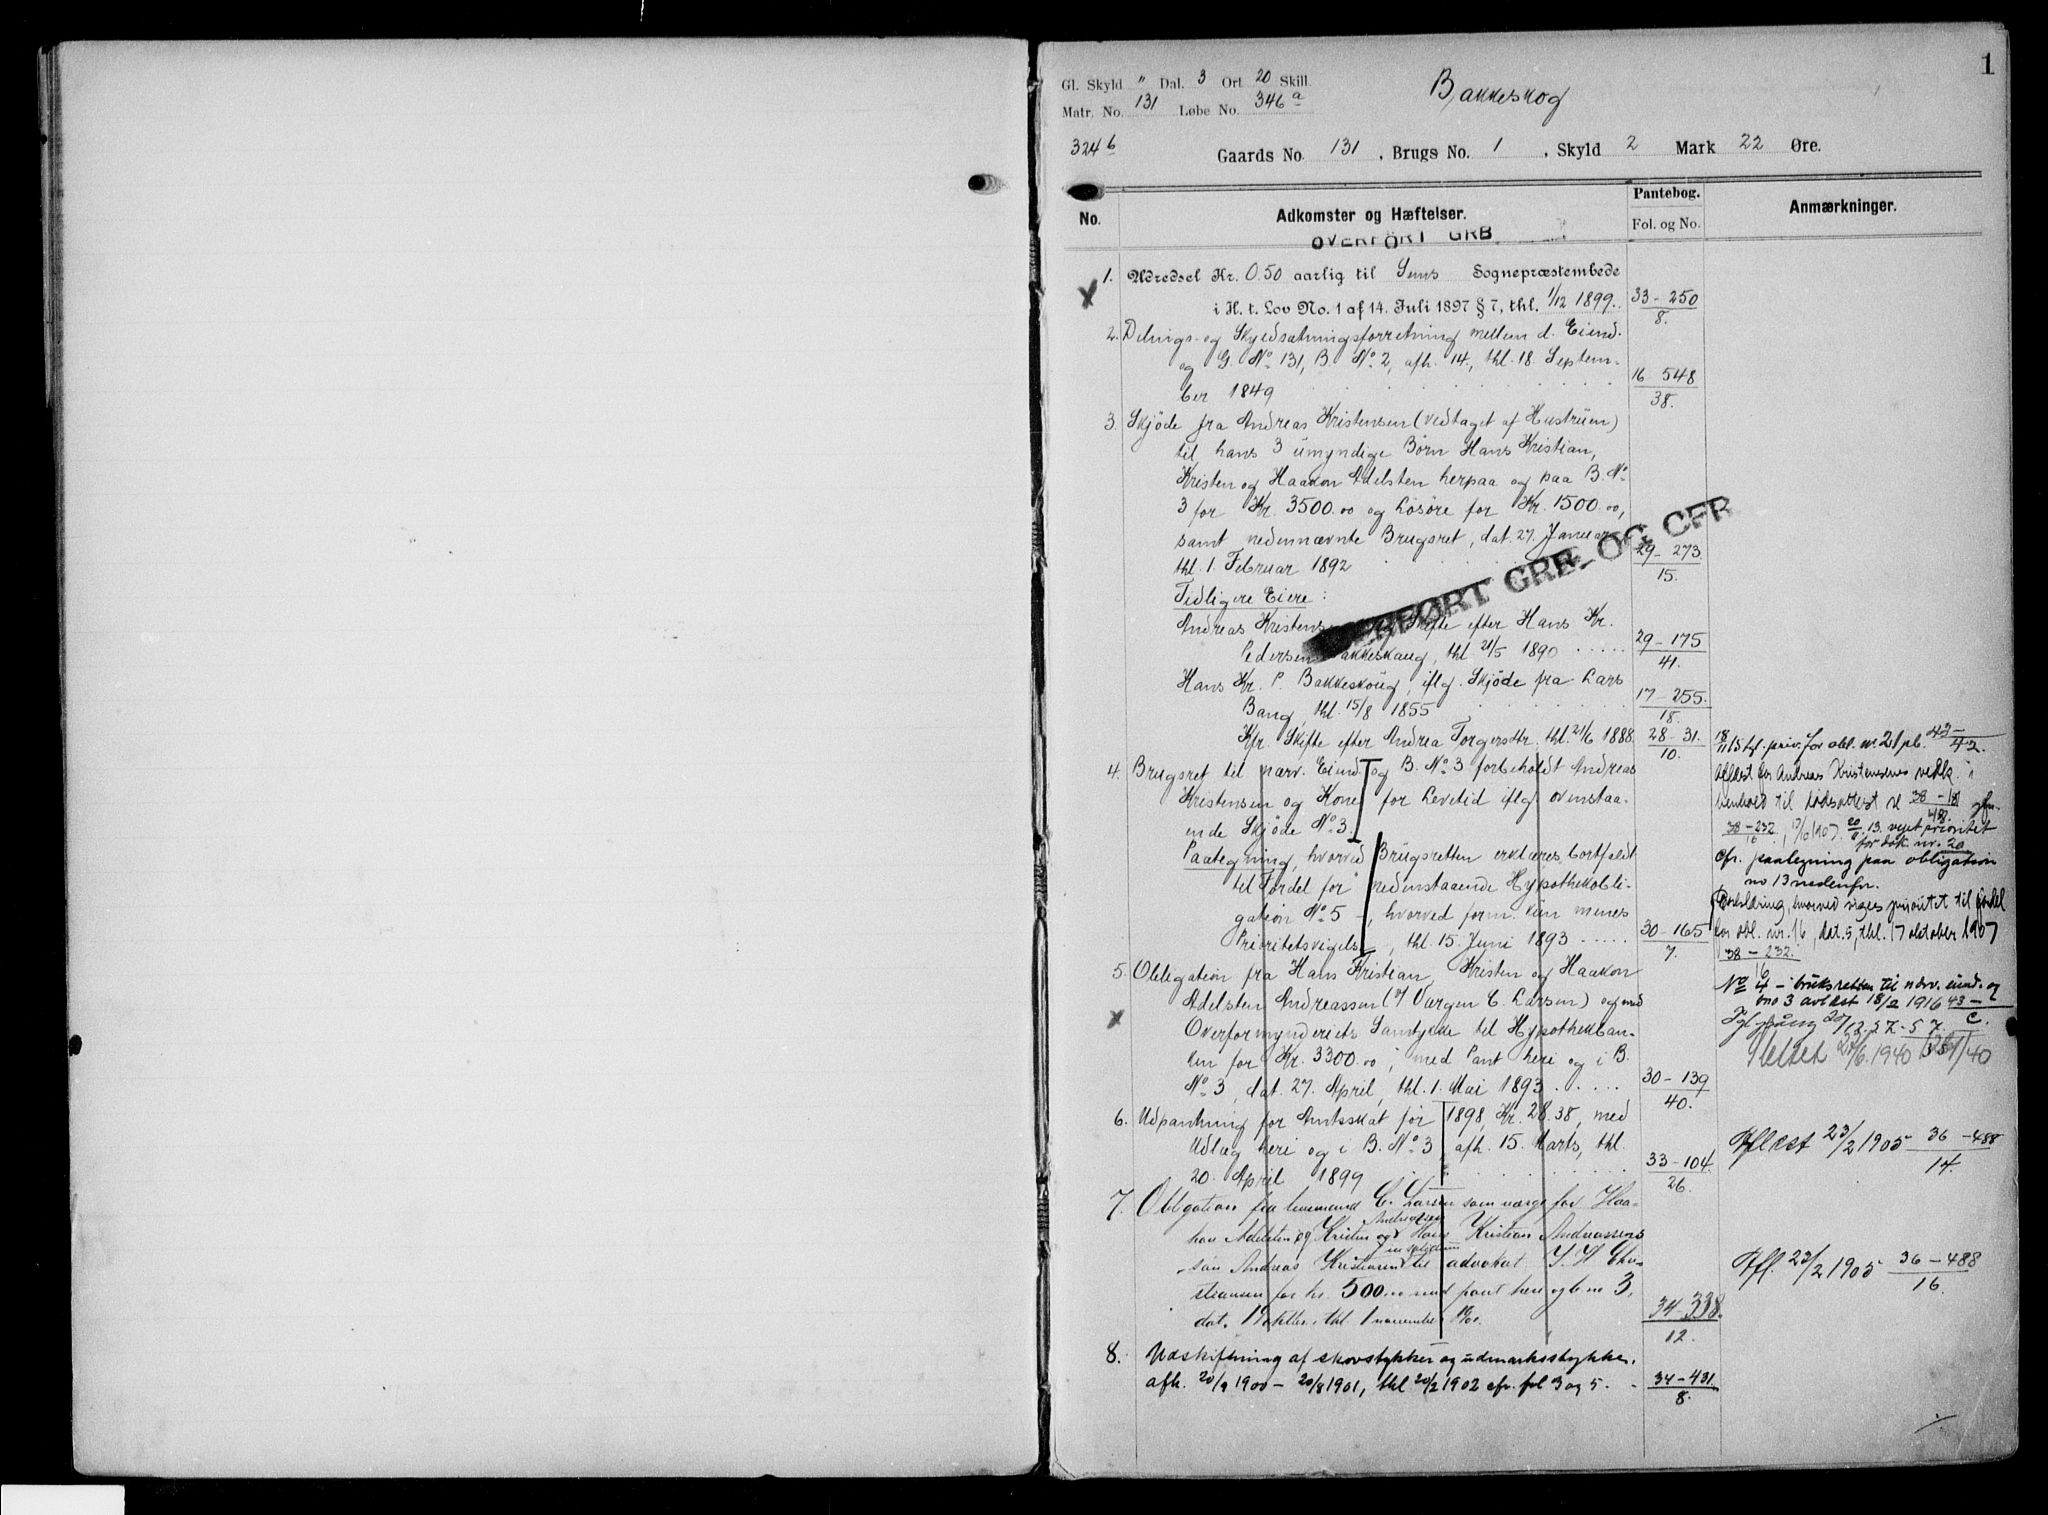 1
Gl. Skyld " Dal. 3 Ort 20 Skill.
Bakkeskog
Matr. No. 131 Løbe No. 346 a
324 b
Gaards No. 131, Brugs No. 1, Skyld 2 Mark 22 Øre.
No.
Adkomster og Hæftelser.
Pantebog.
Fol. og No.
Anmærkninger.
OVERFØRT GRB
1. Udredsel Kr. 0.50 aarlig til Sems Sognepræstembede
i H. t. Lov No. 1 af 14. Juli 1897 § 7, thl. 1/12 1899. 33-250
8.
2. Delings- og Skyldsætningsforretning mellem d. Eiend.
og G. No. 131, B. No. 2, afh. 14., thl. 18. Septem-
ber 1849 16-548
38.
3. Skjöde fra Andreas Kristensen (vedtaget af Hustruen)
til hans 3 umyndige Börn Hans Kristian,
Kristen og Haakon Adelsten herpaa og paa B. No.
3 for Kr. 3500.00 og Lösöre for Kr. 1500.00,
samt nedennævnte Brugsret, dat. 27. Januar
thl. 1. Februar 1892 29-273
15.
OVERFØRT GRB OG CFR
Tidligere Eiere:
Andreas Kristensen Skifte efter Hans Kr.
Pedersen Bakkeskaug, thl. 21/5 1890 29-175
41.
Hans Kr. P. Bakkeskoug, iflg. Skjöde fra Lars
Bang, thl. 15/8 1855 17-255.
18.
Kfr. Skifte efter Andrea Torgersdtr. thl. 21/6 1888. 28-31.
10.
4. Brugsret til nærv. Eiend. og B. No. 3 forbeholdt Andreas
Kristensen og Kone for Levetid iflg. ovenstaa-
ende Skjöde No. 3.
Paategning, hvorved Brugsretten erklæres bortfaldt
til Fordel for nedenstaaende Hypothekobli-
gation No. 5 -, hvorved form. kun menes
Prioritetsvigelse, thl. 15. Juni 1893 30-165
7.
18/11 15 tgl. priv. for obl. nr. 21 pb. 43-
42.
Aflæst for Andreas Kristensens vedk. i
henhold til dødsattest 38-181
48.
38-232, 17/6 1907. 20/11 13. veget prioritet
16 for dok. nr. 20
Cfr. paategning paa obligation
no 13 nedenfor.
Erklæring, hvorved viges prioritet til fordel
for obl. nr. 16, dat. 5, thl. 17 oktober 1907
38-232.
16
No 4 - bruksretten til nærv. eiend. og
bno 3 avlæst 18/2 1916 43-
C.
5. Obligation fra Hans Kristian, Kristen og Haakon
Adelsten Andreassen (v/ Værgen E. Larsen) og med
Overformynderiets Samtykke til Hypothekban-
ken for Kr. 3300.00, med Pant heri og i B.
No. 3, dat. 27. April, thl. 1. Mai 1893 30-139
40.
Slettet 29/6.1940
6. Udpantning for Amtsskat for 1898, Kr. 28.38, med
Udlæg heri og i B. No. 3, afh. 15. Marts, thl.
20. April 1899 33-104.
26.
Aflæst 23/2 1905 36-488
14.
7. Obligation fra lensmand E. Larsen som værge for Haa-
kon Adelsten og Kristen Andreassen og Hans Kristian Andreassens
samt Andreas Kristiansen til advokat S. H. Chri-
stiansen for kr. 500.00 med pant heri og bno 3,
dat. 19 oktbr. thl 1 november 1900. 34-338.
12.
Afl. 23/2 1905 36-488
16.
8. Udskiftning af skovstykker og udmarksstykker.
afh. 20/9 1900 - 20/8 1901, thl 20/2 1902 cfr. fol 3 og 5. 34-431.
8.